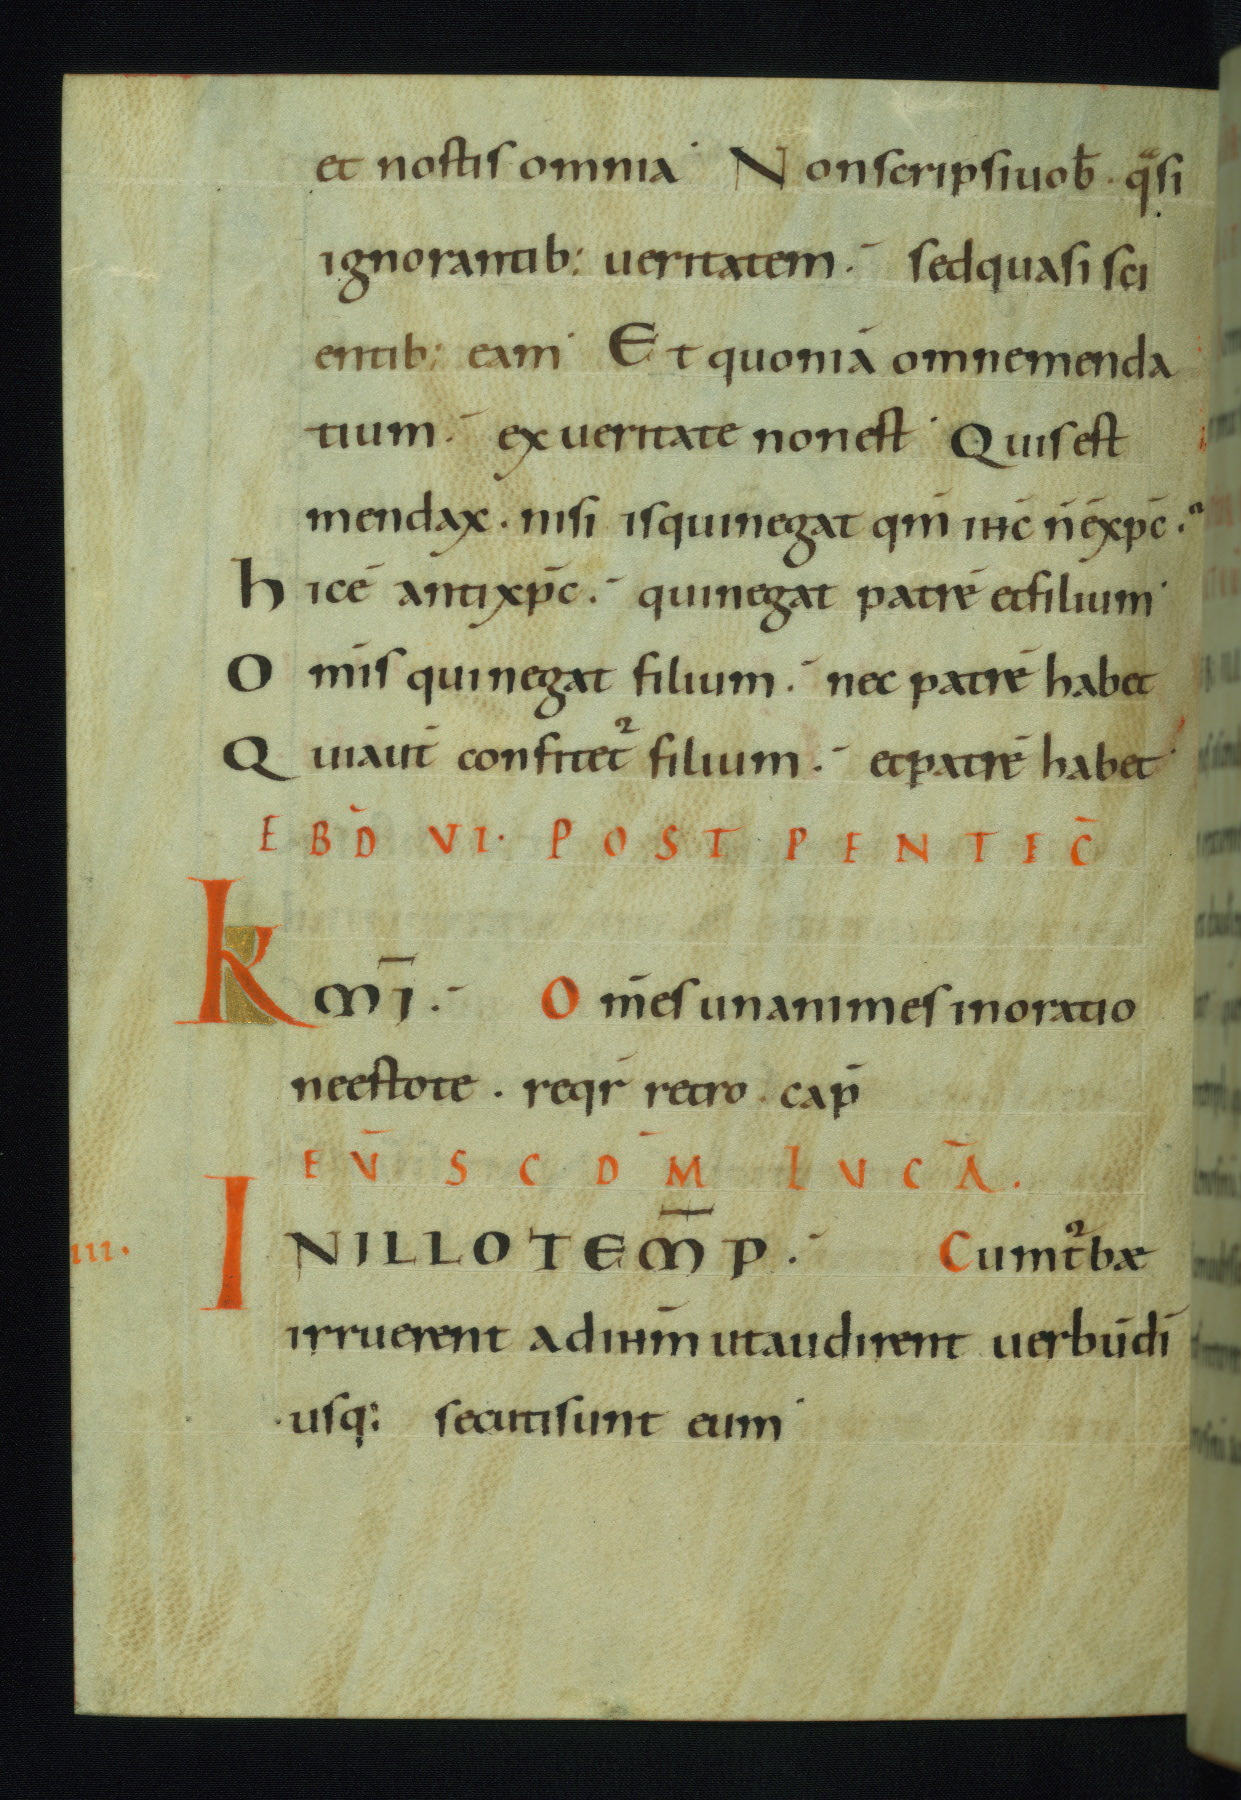 et nostis omnia· Non scripsi uob̄· q̄si
ignorantib: ueritatem·- sed quasi sci
entib: eam· Et quoniā omne menda
tium·- ex ueritate non est· Quis est
mendax· nisi is qui negat qm̄ ihc̄ n̄ ē xpc̄·
hic ē antixpc̄·- qui negat patrē et filium·
Om̄is qui negat filium·- nec patrē habet
Qui aut̄ confitet᷑ filium·- et patrē habet·
EBD̄ VI· POST PENTEC̄
Km̄i·- Om̄es unanimes in oratio
ne estote· reqr̄ retro· cap̄
EV̄ SCDM̄ LUCĀ·
III· IN ILLO TEM̄P·- Cum t᷑bae
irruerent ad ihm̄ ut audirent uerbū dī
usq: secuti sunt eum·